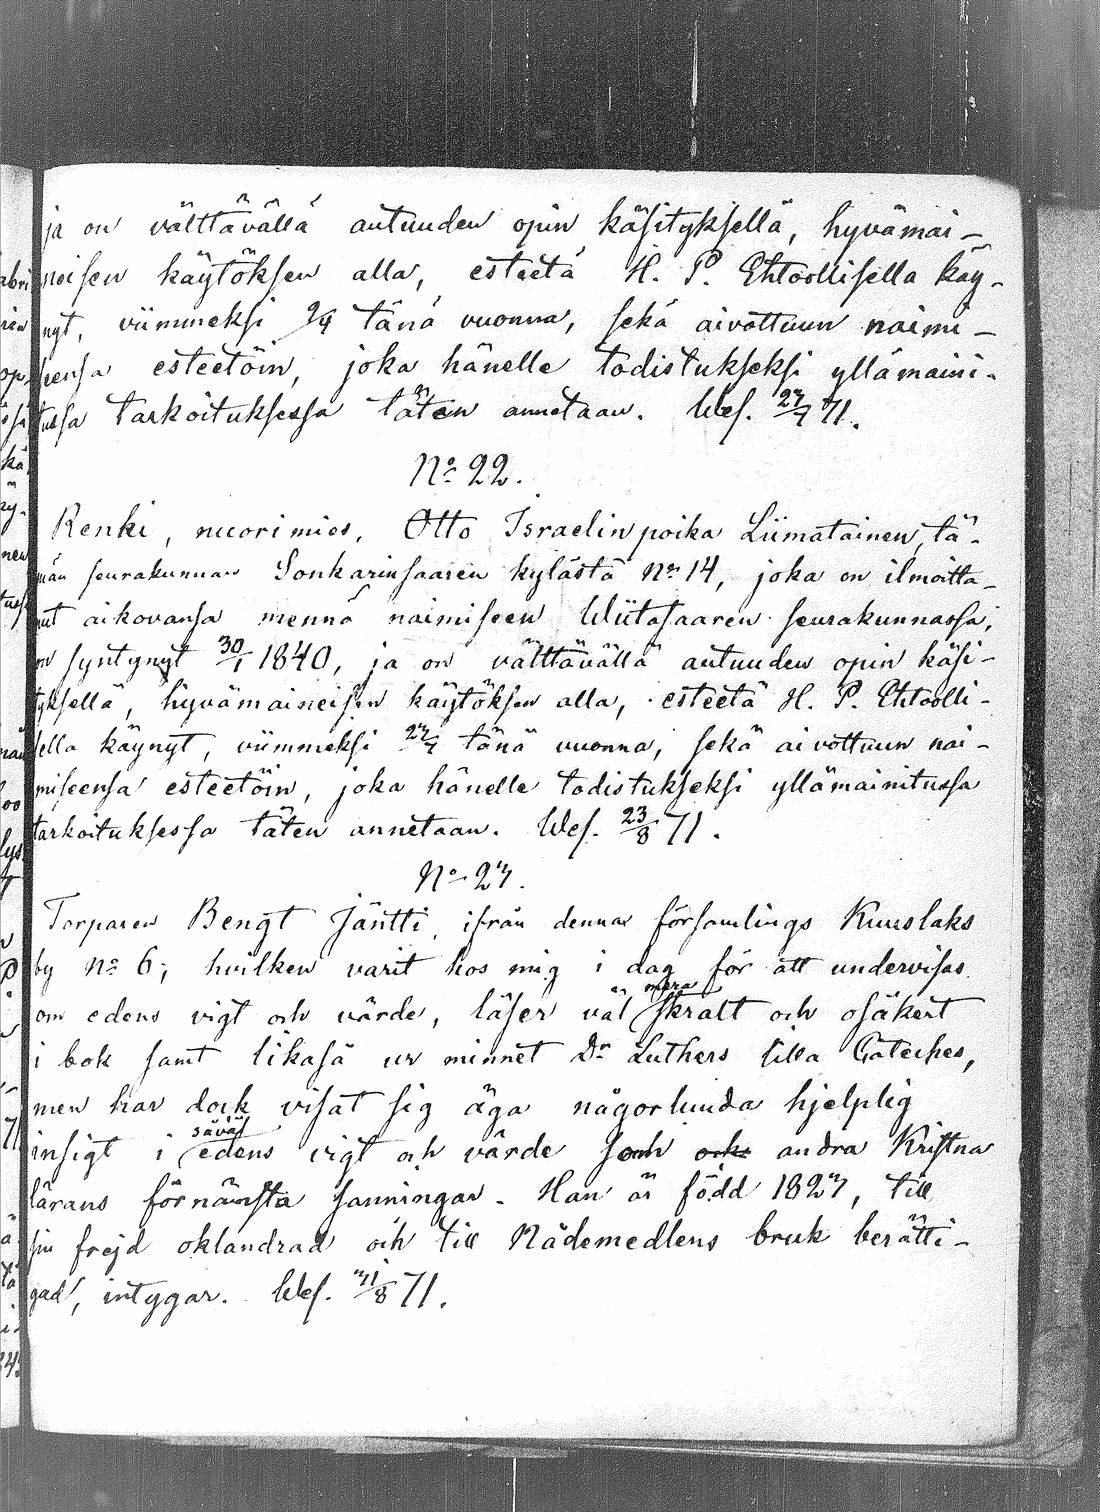 ja on välttävällä autuuden opin käsityksellä, hyvämai-
neisen käytöksen alla, esteetä H. P. Ehtoollisella käy-
nyt, viimmeksi tänä vuonna, sekä aivottuun naimi-
seensa esteetöin, joka hänelle todistukseksi yllämaini-
tussa tarkoituksessa täten annetaan. Wes. 71.
No 22.
Renki, nuori mies, Otto Israelin poika Liimatainen, tä-
män seurakunnan Sonkarinsaaren kylästä No 14, joka on ilmoitta-
nut aikovansa mennä naimiseen Wiitasaaren seurakunnassa,
on syntynyt 30/1 1840, ja on välttävällä autuuden opin käsi-
tyksellä, hyvämaineisen käytöksen alla, esteetä H. P. Ehtoolli-
sella käynyt, viimmeksi tänä vuonna, sekä aivottuun nai-
miseensa esteetöin, joka hänelle todistukseksi yllämainitussa
tarkoituksessa täten annetaan. Wes. 23/8 71.
No 23.
Torparen Bengt Jäntti, ifrån denna församlings Kuuslaks
by No 6, hvilken varit hos mig i dag för att undervisas
om edens vigt och värde, läser väl mera skralt och osäkert
i bok samt likaså ur minnet Dr Luthers lilla Cateches,
men har dock visat sig äga någorlunda hjelplig
insigt i såväl edens vigt och värde som och andra Kristna
lärans förnämsta sanningar. Han är född 1823, till
sin frejd oklandrad och till Nådemedlens bruk berätti-
gad, intygar. Wes. 31/8 71.